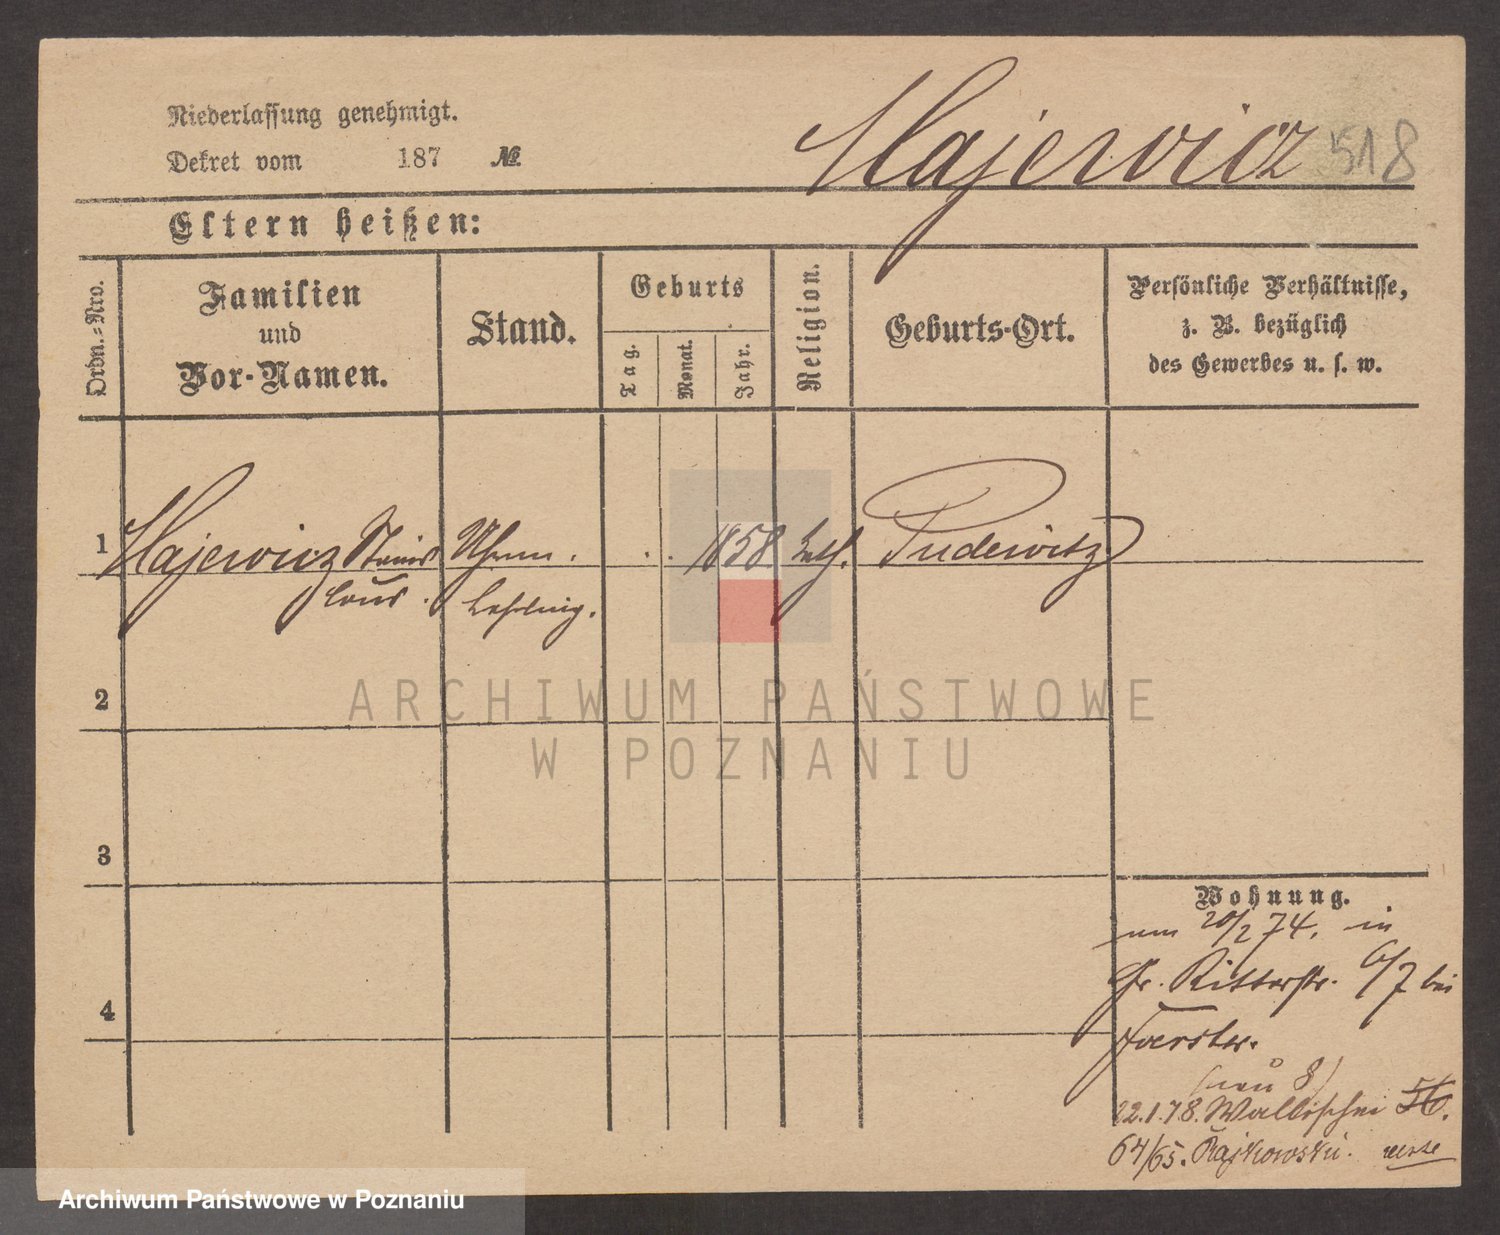 Niederlassung genehmigt.
Dekret vom 187 №
Majewicz 518
Eltern heißen:
Ordn.-Nro.
Familien
und
Vor-Namen.
Stand.
Geburts
Tag.
Monat.
Jahr.
Religion.
Geburts-Ort.
Persönliche Verhältnisse,
z. B. bezüglich
des Gewerbes u. s. w.
1 Majewicz Stanis Uhrm. 1858. kath. Pudewitz
laus. Lehrling.
2
3
4
Wohnung.
20/2 74. in
Gr. Ritterstr. 6/7 bei
Foerster.
(neu 8)
22.1.78. Wallischei 56.
64/65. Rajkowski.
ARCHIWUM PAŃSTWOWE
W POZNANIU
Archiwum Państwowe w Poznaniu